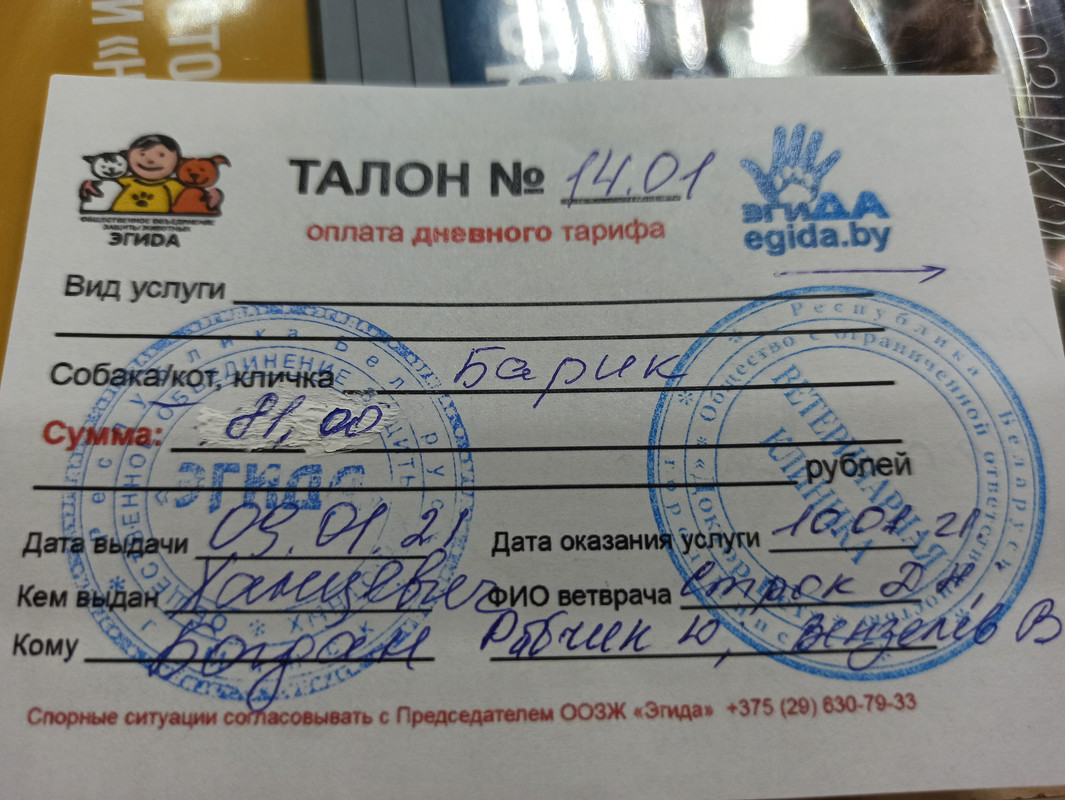 ТО
И «Н
ОБЩЕСТВЕННОЕ ОБЪЕДИНЕНИЕ
ЗАЩИТЫ ЖИВОТНЫХ
ЭГИДА
ТАЛОН № 14.01
оплата дневного тарифа
эгиДА
egida.by
Вид услуги
Собака/кот, кличка Барик
Сумма: 81,00
рублей
Дата выдачи 09.01.21
Дата оказания услуги 10.01.21
Кем выдан Ханцевич
ФИО ветврача Строк Д
Кому
Рябчик Ю, Вензелев В
Спорные ситуации согласовывать с Председателем ООЗЖ «Эгида» +375 (29) 630-79-33
Республика Беларусь
ЭГИДА
Республика Беларусь
Общество с ограниченной ответственностью
ВЕТЕРИНАРНАЯ
КЛИНИКА